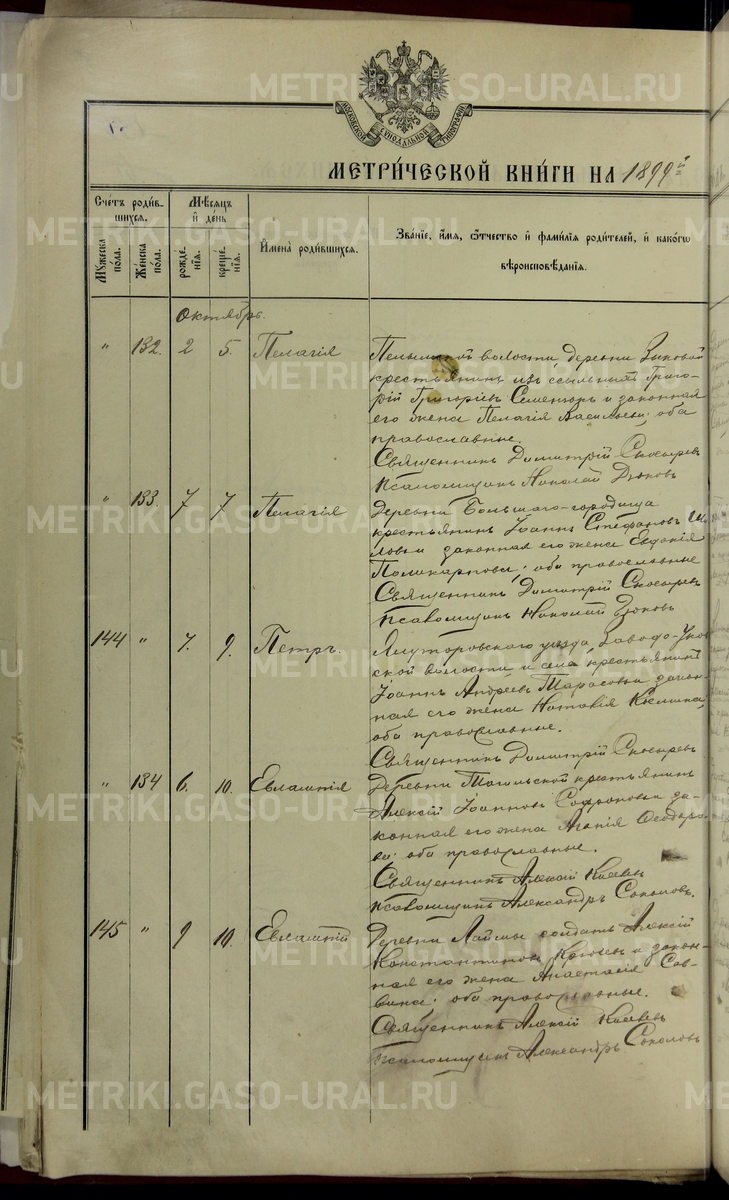 METRIKI.GASO-URAL.RU
МОСКОВСКОЙ СУНОДАЛЬНОЙ ТИПОГРАФІИ
МЕТРИ́ЧЕСКОЙ КНИ́ГИ НА 1899й
Сче́тъ роди́в-
шихся.
Мѣ́сяцъ
и҆ де́нь
Мꙋ́жеска
по́ла.
Же́нска
по́ла.
рожде́-
нїя.
креще́-
нїя.
И҆мена̀ роди́вшихся.
Зва́нїе, и҆́мя, ѻ҆́тчество и҆ фами́лїя роди́телей, и҆ како́гѡ
вѣроисповѣ́данїя.
Октябрь.
" 132. 2 5. Пелагія
Пелымской волости, деревни Зыковой
крестьянинъ изъ ссыльныхъ Григо-
рій Григорьевъ и законная
его жена Пелагія Васильева; оба
православные.
Священникъ Димитрій
Псаломщикъ Николай Дюковъ
" 133. 7 7. Пелагія
Деревни Большаго-городища
крестьянинъ Іоаннъ Стефановъ
и законная его жена Евдокія
Поликарпова; оба православные
Священникъ Димитрій
Псаломщикъ Николай Дюковъ
144 " 7. 9. Петръ.
Ялуторовскаго уезда, Заводо-Уков-
ской волости и села крестьянинъ
Іоаннъ Андреевъ Тарасовъ и закон-
ная его жена Наталія
оба православные.
Священникъ Димитрій
" 134 6. 10. Евлампія
Деревни крестьянинъ
Алексій Іоанновъ Софроновъ и за-
конная его жена Агафія Феодоро-
ва; оба православные.
Священникъ Алексій
Псаломщикъ Александръ Соколовъ.
145 " 9 10. Евлампій
Деревни Лаймы солдатъ Алексій
Константиновъ и закон-
ная его жена Анастасія Сав-
вина; оба православные.
Священникъ Алексій
Псаломщикъ Александръ Соколовъ